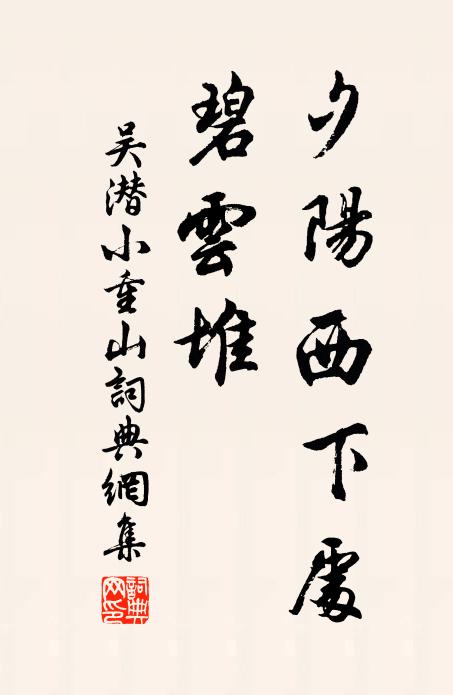 夕陽西下處
碧雲堆
吴潜小重山詞典網集
詞典网印